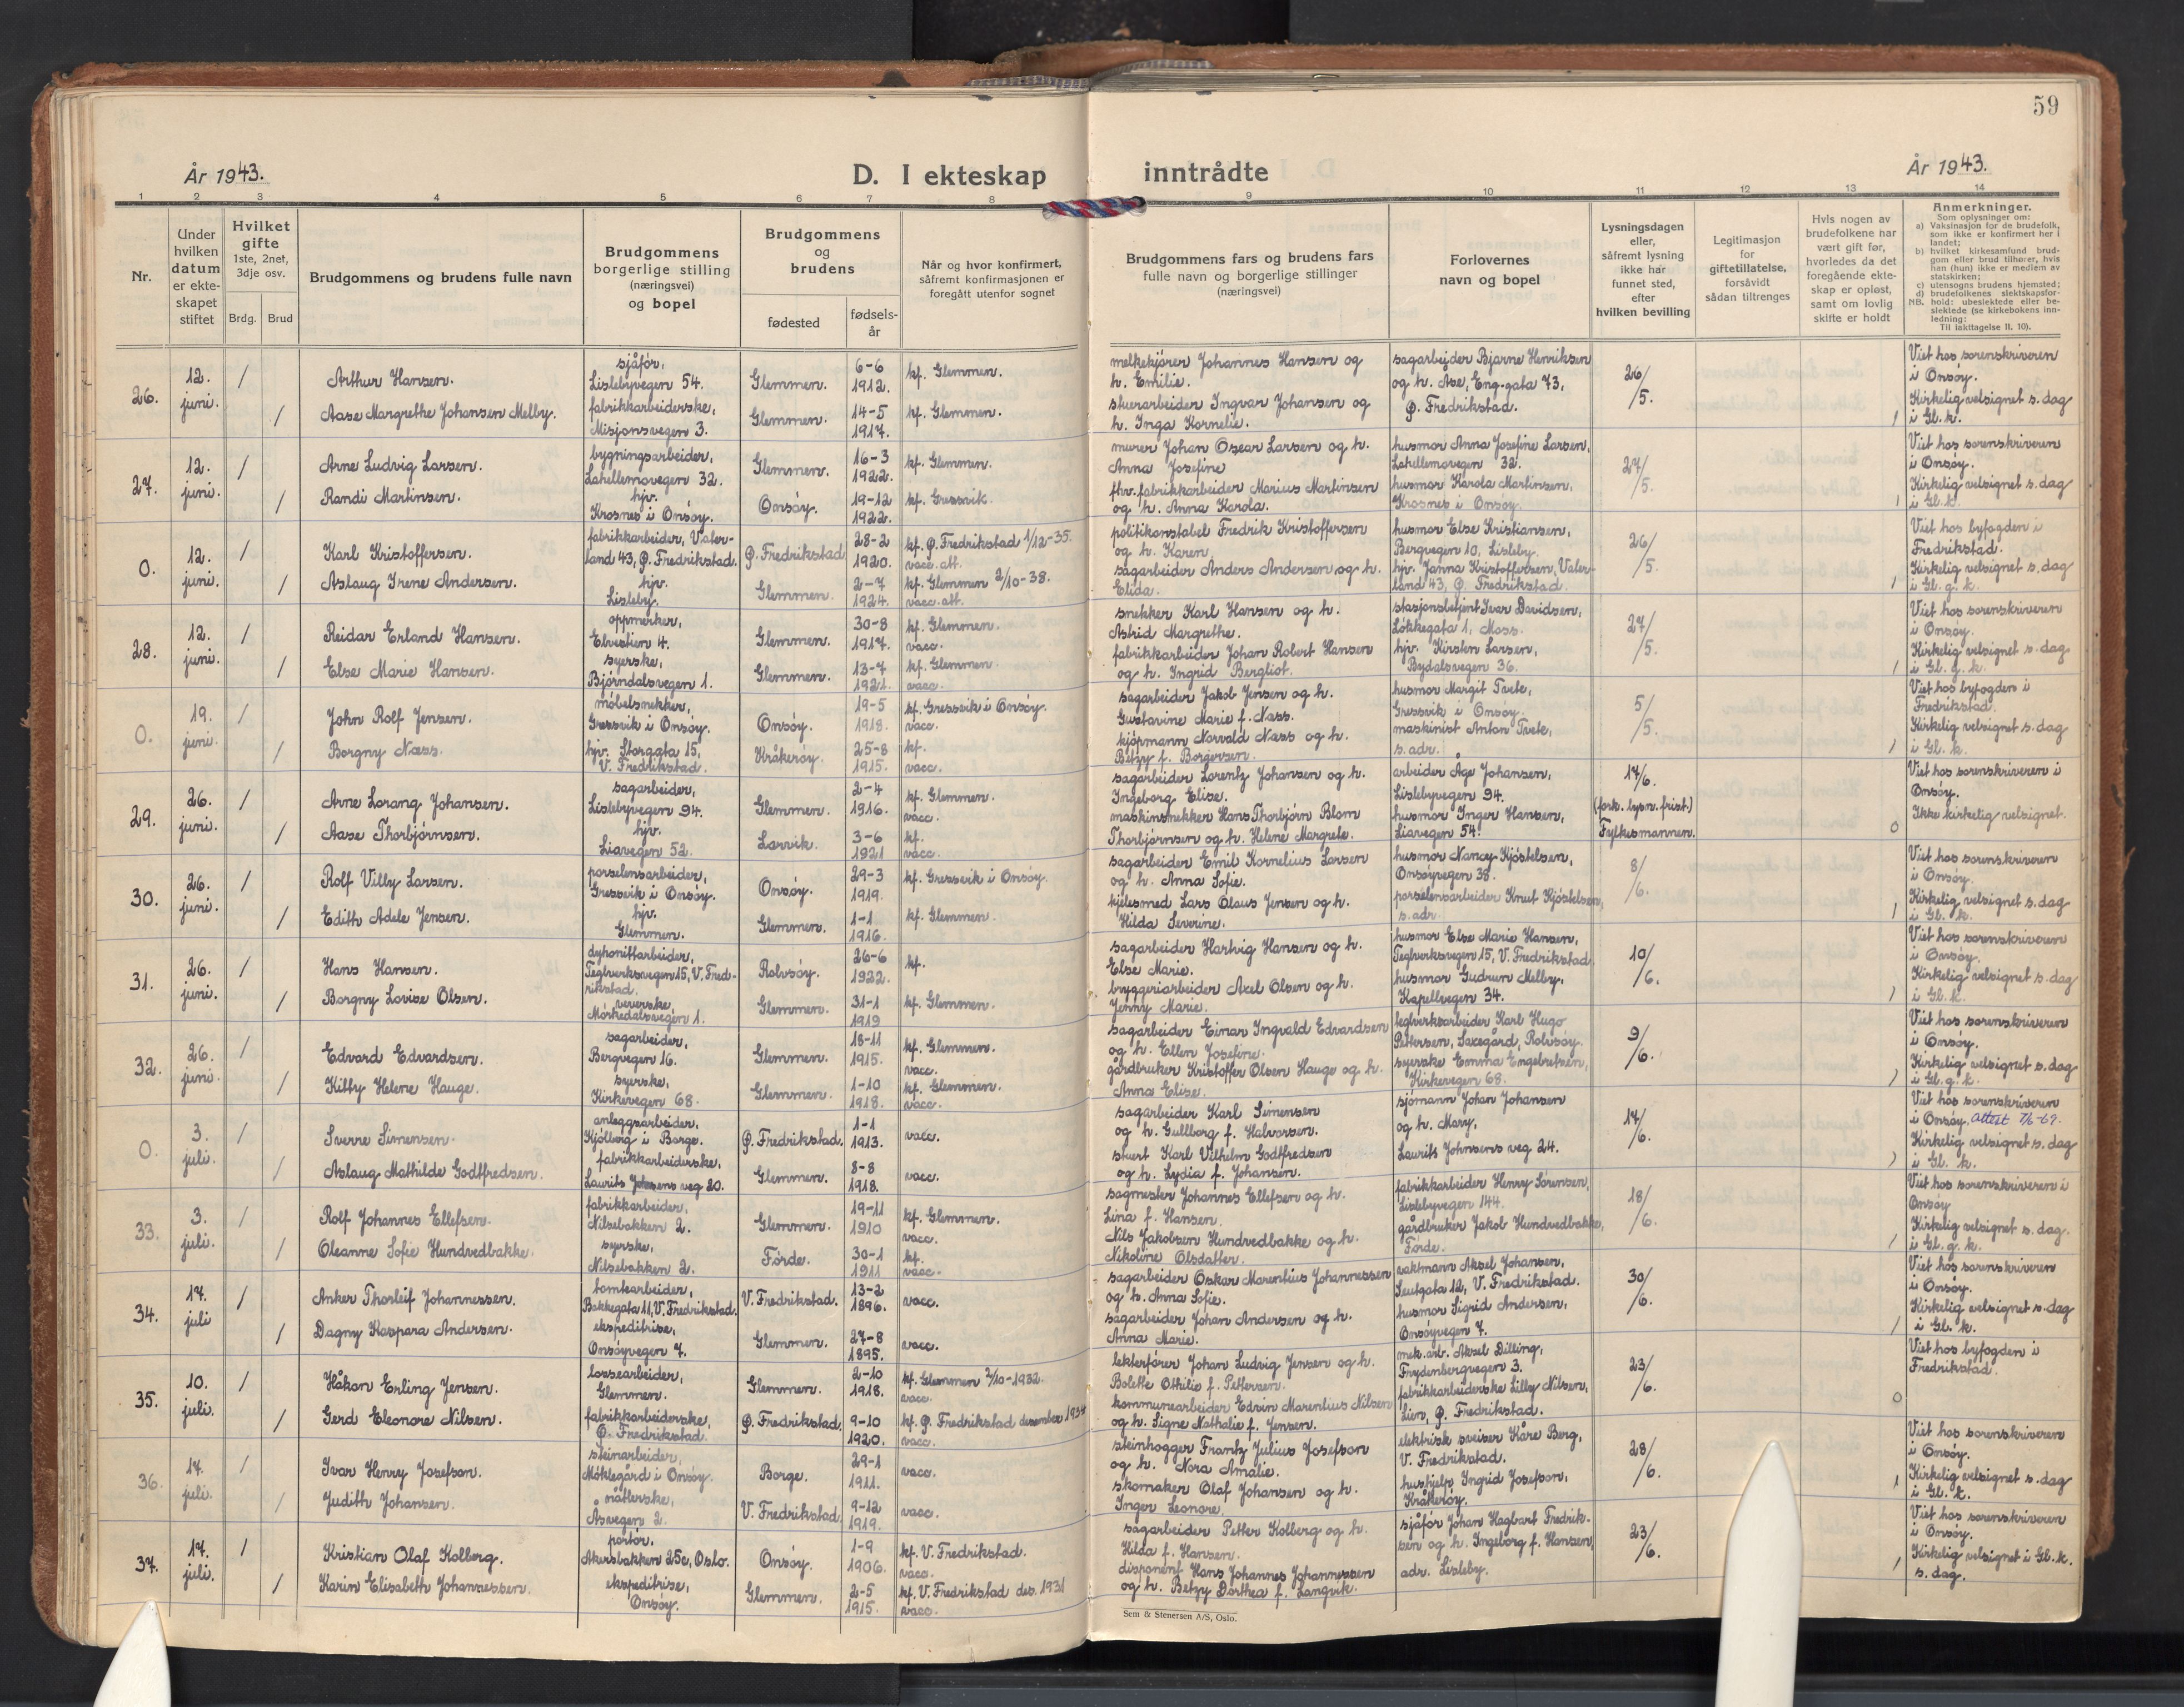 59
År 1943.
D. I ekteskap inntrådte
År 1943.
1 2 3 4 5 6 7 8 9 10 11 12 13 14
Nr.
Under
hvilken
datum
er ekte-
skapet
stiftet
Hvilket
gifte
1ste, 2net,
3dje osv.
Brdg. Brud
Brudgommens og brudens fulle navn
Brudgommens
borgerlige stilling
(næringsvei)
og bopel
Brudgommens
og
brudens
fødested
fødsels-
år
Når og hvor konfirmert,
såfremt konfirmasjonen er
foregått utenfor sognet
Brudgommens fars og brudens fars
fulle navn og borgerlige stillinger
(næringsvei)
Forlovernes
navn og bopel
Lysningsdagen
eller,
såfremt lysning
ikke har
funnet sted,
efter
hvilken bevilling
Legitimasjon
for
giftetillatelse,
forsåvidt
sådan tiltrenges
Hvis nogen av
brudefolkene har
vært gift før,
hvorledes da det
foregående ekte-
skap er opløst,
samt om lovlig
skifte er holdt
Anmerkninger.
Som oplysninger om:
a) Vaksinasjon for de brudefolk,
som ikke er konfirmert her i
landet;
b) hvilket kirkesamfund brud-
gom eller brud tilhører, hvis
han (hun) ikke er medlem av
statskirken;
c) utensogns brudens hjemsted;
d) brudefolkenes slektskapsfor-
NB. hold: ubeslektede eller be-
slektede (se kirkebokens inn-
ledning:
Til iakttagelse II. 10).
26.
12.
juni.
1
Arthur Hansen.
sjåfør,
Lislebyvegen 54.
Glemmen.
6-6
1912.
kf. Glemmen.
melkekjører Johannes Hansen og
h. Emilie.
sagarbeider Bjarne Henriksen
og h. Åse, Eng-gata 73,
Ø. Fredrikstad.
26/5.
Viet hos sorenskriveren
i Onsøy.
Kirkelig velsignet s. dag
i Gl. k.
1
Aase Margrethe Johansen Melby.
fabrikkarbeiderske,
Misjonsvegen 3.
Glemmen.
14-5
1917.
kf. Glemmen.
stuerarbeider Ingvar Johansen og
h. Inga Kornelie.
27.
12.
juni.
1
Arne Ludvig Larsen.
bygningsarbeider,
Lahellemovegen 32.
Glemmen.
16-3
1922.
kf. Glemmen.
murer Johan Oscar Larsen og h.
Anna Josefine
husmor Anna Josefine Larsen,
Lahellemovegen 32.
27/5.
Viet hos sorenskriveren
i Onsøy.
Kirkelig velsignet s. dag
i Gl. k.
1
Randi Martinsen.
hjv.
Krosnes i Onsøy.
Onsøy.
19-12
1922.
kf. Gressvik.
fhv. fabrikkarbeider Marius Martinsen
og h. Anna Karola.
husmor Karola Martinsen,
Krosnes i Onsøy.
0.
12.
juni.
1
Karl Kristoffersen.
fabrikkarbeider, Vater-
land 43, Ø. Fredrikstad.
Ø. Fredrikstad
28-2
1920.
kf. Ø. Fredrikstad 1/12-35.
vacc. att.
politikonstabel Fredrik Kristoffersen
og h. Karen.
husmor Else Kristiansen,
Bergvegen 10, Lisleby.
26/5.
Viet hos byfogden i
Fredrikstad.
Kirkelig velsignet s. dag
i Gl. g. k.
1
Aslaug Irene Andersen.
hjv.
Lisleby.
Glemmen.
2-7
1924.
kf. Glemmen 2/10-38.
vacc. att.
sagarbeider Anders Andersen og h.
Elida.
hjv. Janna Kristoffersen, Vater-
land 43, Ø. Fredrikstad
28.
12.
juni.
1
Reidar Erland Hansen.
oppmerker,
Elvestien 4.
Glemmen.
30-8
1917.
kf. Glemmen.
vacc.
snekker Karl Hansen og h.
Astrid Margrethe.
stasjonsbetjent Ivar Davidsen,
Løkkegata 1, Moss.
27/5.
Viet hos sorenskriveren
i Onsøy.
Kirkelig velsignet s. dag
i Gl. g. k.
1
Else Marie Hansen.
syerske,
Bjørndalsvegen 1.
Glemmen.
13-7
1921.
kf. Glemmen.
vacc.
fabrikkarbeider Johan Robert Hansen
og h. Ingrid Bergliot.
hjv. Kirsten Larsen,
Bydalsvegen 36.
0.
19.
juni.
1
John Rolf Jensen.
møbelsnekker,
Gressvik i Onsøy.
Onsøy.
19-5
1918.
kf. Gressvik i Onsøy.
vacc.
sagarbeider Jakob Jensen og h.
Gustavine Marie f. Næss.
husmor Margit Tvete,
Gressvik i Onsøy.
5/5.
Viet hos byfogden i
Fredrikstad.
Kirkelig velsignet s. dag
i Gl. k.
1
Borgny Næss.
hjv. Storgata 15,
V. Fredrikstad.
Kråkerøy.
25-8
1915.
kf.
vacc.
kjøpmann Norvald Næss og h.
Betzy f. Borgersen.
maskinist Anton Tvete,
s. adr.
29.
26.
juni.
1
Arne Lorang Johansen.
sagarbeider,
Lislebyvegen 94.
Glemmen.
2-4
1916.
kf. Glemmen.
vacc.
sagarbeider Lorentz Johansen og h.
Ingeborg Elise.
arbeider Åge Johansen,
Lislebyvegen 94.
17/6.
(fork. lysn. frist.)
Fylkesmannen.
Viet hos sorenskriveren i
Onsøy.
Ikke kirkelig velsignet.
1
Aase Thorbjørnsen.
hjv.
Liavegen 52.
Larvik.
3-6
1921
kf.
vacc.
maskinsnekker Hans Thorbjørn Blom
Thorbjørnsen og h. Helene Margrete.
husmor Inger Hansen,
Liavegen 54.
0
30.
26.
juni.
1
Rolf Villy Larsen.
porselensarbeider,
Gressvik i Onsøy.
Onsøy.
29-3
1919.
kf. Gressvik i Onsøy.
sagarbeider Emil Kornelius Larsen
og h. Anna Sofie.
husmor Nancy Kjøstelsen,
Onsøyvegen 38.
8/6.
Viet hos sorenskriveren
i Onsøy.
Kirkelig velsignet s. dag
i Gl. k.
1
Edith Adele Jensen.
hjv.
Glemmen.
Glemmen.
1-1
1916.
kf. Glemmen.
kjelesmed Lars Olaus Jensen og h.
Hilda Severine.
porselensarbeider Knut Kjøstelsen,
s. adr.
31.
26.
juni.
1
Hans Hansen.
dyhonittarbeider,
Teglverksvegen 15, V. Fred-
rikstad.
Rolvsøy.
26-6
1922.
kf.
sagarbeider Hartvig Hansen og h.
Else Marie.
husmor Else Marie Hansen,
Teglverksvegen 15, V. Fredrikstad
10/6.
Viet hos sorenskriveren
i Onsøy.
Kirkelig velsignet s. dag
i Gl. k.
1
Borgny Lovise Olsen.
veverske,
Mørkedalsvegen 1.
Glemmen.
31-1
1919
kf. Glemmen.
bryggeriarbeider Axel Olsen og h.
Jenny Marie.
husmor Gudrun Melby,
Kapellvegen 34.
32.
26.
juni.
1
Edvard Edvardsen.
sagarbeider,
Bergvegen 16.
Glemmen.
18-11
1915.
kf. Glemmen.
vacc.
sagarbeider Einar Ingvald Edvardsen
og h. Ellen Josefine.
teglverksarbeider Karl Hugo
Pettersen, Saxegård, Rolvsøy.
9/6.
Viet hos sorenskriveren
i Onsøy.
Kirkelig velsignet s. dag
i Gl. g. k.
1
Kitty Helene Hauge.
syerske,
Kirkevegen 68.
Glemmen.
1-10
1918.
kf. Glemmen.
vacc.
gårdbruker Kristoffer Olsen Hauge og h.
Anna Elise.
syerske Emma Engebretsen,
Kirkevegen 68.
0.
3.
juli.
1
Sverre Simensen.
anleggsarbeider,
Kjølberg i Borge.
Ø. Fredrikstad.
1-1
1913.
vacc.
sagarbeider Karl Simensen
og h. Gullborg f. Halvorsen.
sjømann Johan Johansen
og h. Mary,
Laurits Johnsens veg 24.
14/6.
Viet hos sorenskriveren
i Onsøy. Attest 7/6-69.
Kirkelig velsignet s. dag
i Gl. k.
1
Aslaug Mathilde Godtfredsen.
fabrikkarbeiderske,
Laurits Johnsens veg 20.
Glemmen.
8-8
1918.
vacc.
stuert Karl Vilhelm Godtfredsen
og h. Lydia f. Johansen.
33.
3.
juli.
1
Rolf Johannes Ellefsen.
fabrikkarbeider,
Nilsebakken 2.
Glemmen.
19-11
1910
kf. Glemmen.
vacc.
sagmester Johannes Ellefsen og h.
Lina f. Hansen.
fabrikkarbeider Henry Sørensen,
Lislebyvegen 144.
18/6.
Viet hos sorenskriveren i
Onsøy
Kirkelig velsignet s. dag.
i Gl. g. k.
1
Oleanne Sofie Hundvedbakke.
syerske,
Nilsebakken 2.
Førde.
30-1
1911
kf.
vacc.
Nils Jakobsen Hundvedbakke og h.
Nikoline Olsdatter.
gårdbruker Jakob Hundvedbakke,
Førde.
34.
17.
juli
1
Anker Thorleif Johannessen.
tomtearbeider,
Bakkegata 11, V. Fredrikstad.
V. Fredrikstad.
13-2
1896.
vacc.
sagarbeider Oskar Marentius Johannessen
og h. Anna Sofie.
vaktmann Aksel Johansen,
Seutgata 12, V. Fredrikstad.
30/6.
Viet hos sorenskriveren
i Onsøy.
Kirkelig velsignet s. dag
i Gl. k.
1
Dagny Kaspara Andersen.
ekspeditrise,
Onsøyvegen 7.
Glemmen.
27-8
1895.
vacc.
sagarbeider Johan Andersen og h.
Anna Marie.
husmor Sigrid Andersen,
Onsøyvegen 7.
35.
10.
juli.
1
Håkon Erling Jensen.
lossearbeider,
Glemmen.
Glemmen.
2-10
1918.
kf. Glemmen 2/10-1932.
vacc.
lekterfører Johan Ludvig Jensen og h.
Bolette Othilie f. Pettersen.
mek. arb. Aksel Dilling,
Frydenbergvegen 3.
23/6.
Viet hos byfogden i
Fredrikstad.
1
Gerd Eleonore Nilsen.
fabrikkarbeiderske,
Ø. Fredrikstad.
Ø. Fredrikstad
9-10
1920.
kf. Ø. Fredrikstad desember 1934
vacc.
kommunearbeider Edvin Marentius Nilsen
og h. Signe Nathalie f. Jensen.
fabrikkarbeiderske Lilly Nilsen,
Lien, Ø. Fredrikstad.
0
36.
17.
juli.
1
Ivar Henry Josefson.
steinarbeider,
Møklegård i Onsøy.
Borge.
29-1
1911.
vacc.
steinhogger Frantz Julius Josefson
og h. Nora Amalie.
elektrisk sveiser Kåre Berg,
V. Fredrikstad.
28/6.
Viet hos sorenskriveren
i Onsøy.
Kirkelig velsignet s. dag
i Gl. k.
1
Judith Johansen.
nåtlerske,
Åsvegen 2.
V. Fredrikstad.
9-12
1919.
vacc.
skomaker Olaf Johansen og h.
Inger Leonore.
hushjelp Ingrid Josefson,
Kråkerøy.
37.
17.
juli.
1
Kristian Olaf Kolberg.
portør,
Akersbakken 25c, Oslo.
Onsøy.
1-9
1906.
kf. V. Fredrikstad.
vacc.
sagarbeider Petter Kolberg og h.
Hilda f. Hansen.
sjåfør Johan Hagbart Fredrik-
sen og h. Ingeborg f. Hansen,
adr. Lisleby.
23/6.
Viet hos sorenskriveren
i Onsøy.
Kirkelig velsignet i Gl. k.
s. dag.
1
Karin Elisabeth Johannessen.
ekspeditrise,
Onsøy.
Glemmen.
2-5
1915.
kf. V. Fredrikstad des. 1931
vacc.
disponent Hans Johannes Johannessen
og h. Betzy Dorthea f. Langvik.
Sem & Stenersen A/S, Oslo.